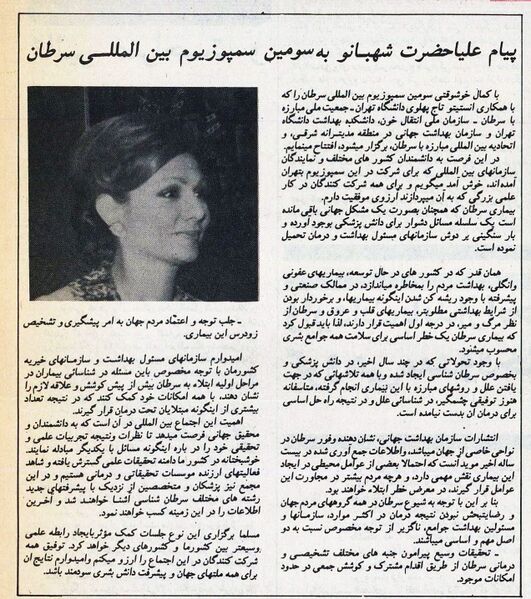 پیام علیاحضرت شهبانو به سومین سمپوزیوم بین المللی سرطان
با کمال خوشوقتی سومین سمپوزیوم بین المللی سرطان را که
با همکاری انستیتو تاج پهلوی دانشگاه تهران ـ جمعیت ملی مبارزه
با سرطان ـ سازمان ملی انتقال خون، دانشکده بهداشت دانشگاه
تهران و سازمان بهداشت جهانی در منطقه مدیترانه شرقی، و
اتحادیه بین المللی مبارزه با سرطان، برگزار میشود، افتتاح مینمایم.
در این فرصت به دانشمندان کشور های مختلف و نمایندگان
سازمانهای بین المللی که برای شرکت در این سمپوزیوم بتهران
آمده‌اند، خوش آمد میگویم و برای همه شرکت کنندگان در کار
علمی بزرگی که به آن میپردازند آرزوی موفقیت دارم.
بیماری سرطان که همچنان بصورت یک مشکل جهانی باقی مانده
است یک سلسله مسائل دشوار برای دانش پزشکی بوجود آورده و
بار سنگینی بر دوش سازمانهای مسئول بهداشت و درمان تحمیل
نموده است.
همان قدر که در کشور های در حال توسعه، بیماریهای عفونی
وانگلی، بهداشت مردم را بمخاطره میاندازد، در ممالک صنعتی و
پیشرفته با وجود ریشه کن شدن اینگونه بیماریها، و برخوردار بودن
از شرایط بهداشتی مطلوبتر، بیماریهای قلب و عروق و سرطان از
نظر مرگ و میر، در درجه اول اهمیت قرار دارند، لذا باید قبول کرد
که بیماری سرطان یک خطر اساسی برای سلامت همه جوامع بشری
محسوب میشود.
با وجود تحولاتی که در چند سال اخیر، در دانش پزشکی و
بخصوص سرطان شناسی ایجاد شده و با همه تلاشهائی که در جهت
یافتن علل و روشهای مبارزه با این بیماری انجام گرفته، متاسفانه
هنوز توفیقی چشمگیر، در شناسائی علل و در نتیجه راه حل اساسی
برای درمان آن بدست نیامده است.
انتشارات سازمان بهداشت جهانی، نشان دهنده وفور سرطان در
نواحی خاصی از جهان میباشد، واطلاعات جمع آوری شده در بیست
ساله اخیر موید آنست که احتمالا بعضی از عوامل محیطی در ایجاد
این بیماری نقش مهمی دارد، و هرچه مردم بیشتر در مجاورت این
عوامل قرار گیرند، در معرض خطر ابتلاء خواهند بود.
بنا بر این با توجه به شیوع سرطان در همه گروههای مردم جهان
و رضایتبخش نبودن نتیجه درمان در اکثر موارد، سازمانها و
مسئولین بهداشت جوامع، ناگزیر از توجه مخصوص نسبت به دو
اصل مهم و اساسی میباشند.
ـ تحقیقات وسیع پیرامون جنبه های مختلف تشخیصی و
درمانی سرطان از طریق اقدام مشترک و کوشش جمعی در حدود
امکانات موجود.
ـ جلب توجه و اعتماد مردم جهان به امر پیشگیری و تشخیص
زودرس این بیماری.
امیدوارم سازمانهای مسئول بهداشت و سازمانهای خیریه
کشورمان با توجه مخصوص باین مسئله در شناسائی بیماران در
مراحل اولیه ابتلاء به سرطان بیش از پیش کوشش و علاقه لازم را
نشان دهند، با همه امکانات خود کمک کنند که در نتیجه تعداد
بیشتری از اینگونه مبتلایان تحت درمان قرار گیرند.
اهمیت این اجتماع بین المللی در آن است که به دانشمندان و
محقیق جهانی فرصت میدهد تا نظرات ونتیجه تجربیات علمی و
تحقیقی خود را در باره اینگونه مسائل با یکدیگر مبادله نمایند.
خوشبختانه در کشور ما دامنه تحقیقات علمی گسترش یافته و شاهد
فعالیتهای ارزنده موسسات تحقیقاتی و درمانی هستیم و در این
مجمع نیز پزشکان و متخصصین از نزدیک با پیشرفتهای جدید
رشته های مختلف سرطان شناسی آشنا خواهند شد و آخرین
اطلاعات را در این زمینه کسب خواهند نمود.
مسلما برگزاری این نوع جلسات کمک مؤثربایجاد رابطه علمی
وسیعتر بین کشورما و کشورهای دیگر خواهد کرد. توفیق همه
شرکت کنندگان در این اجتماع را آرزو میکنم وامیدوارم نتایج آن
برای همه ملتهای جهان و پیشرفت دانش بشری سودمند باشد.